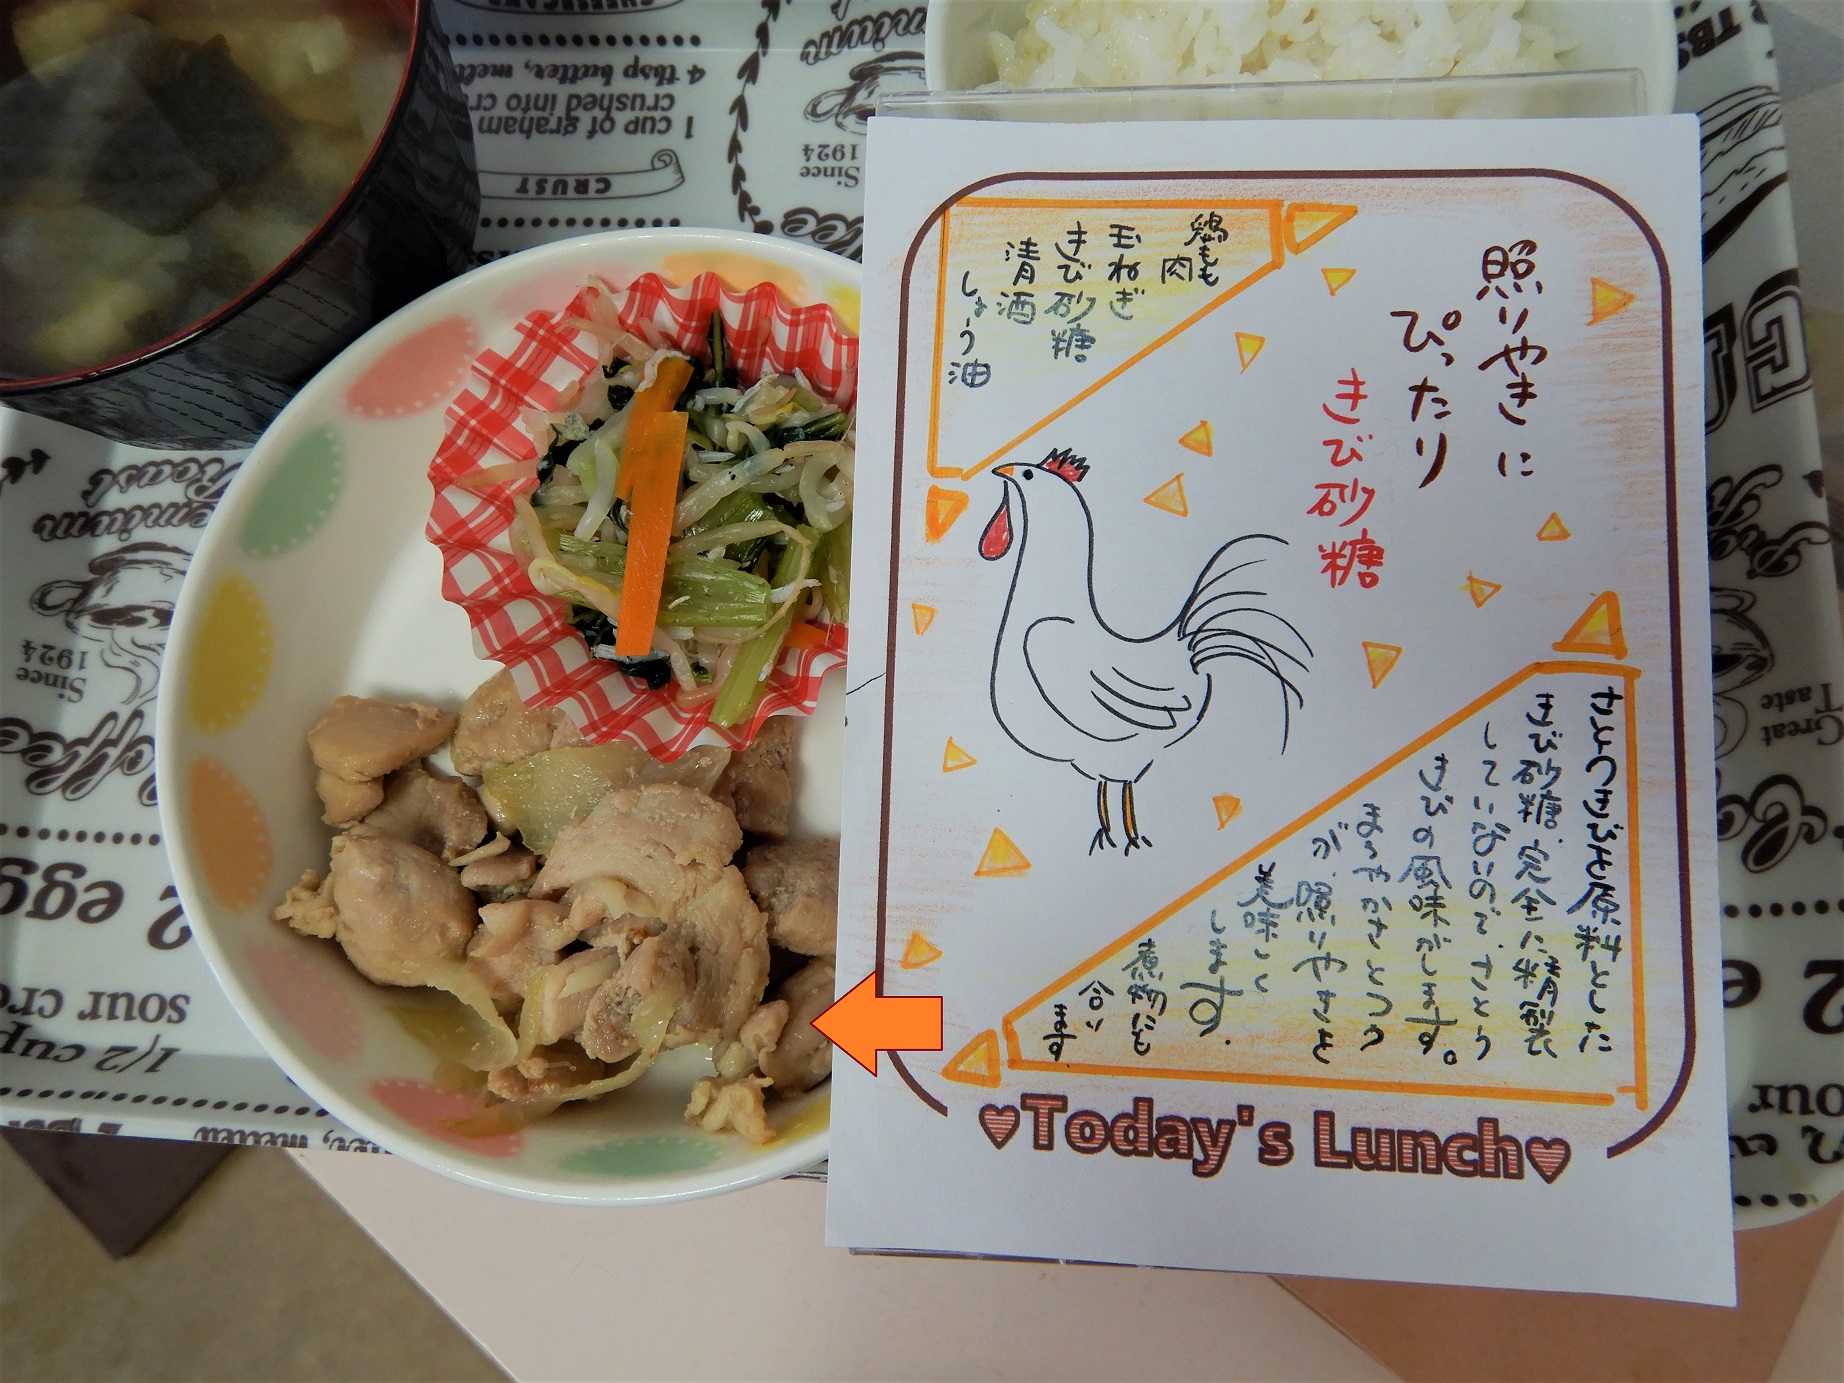 照りやきに
ぴったり
きび砂糖
鶏もも
肉
玉ねぎ
きび砂糖
清酒
しょう油
さとうきびを原料とした
きび砂糖。完全に精製
していないので、さとう
きびの風味がします。
まろやかさとコク
が、照りやきを
美味しく
します。
煮物にも
合い
ます
Today's Lunch
CHEESECAKE
4 tbsp butter, melt
crushed into cr
1 cup of graham
CRUST
Since
1924
Coffee
Premium
Roast
Since
1924
Coffee
2 egg
sour cre
1/2 cup
Great
Taste